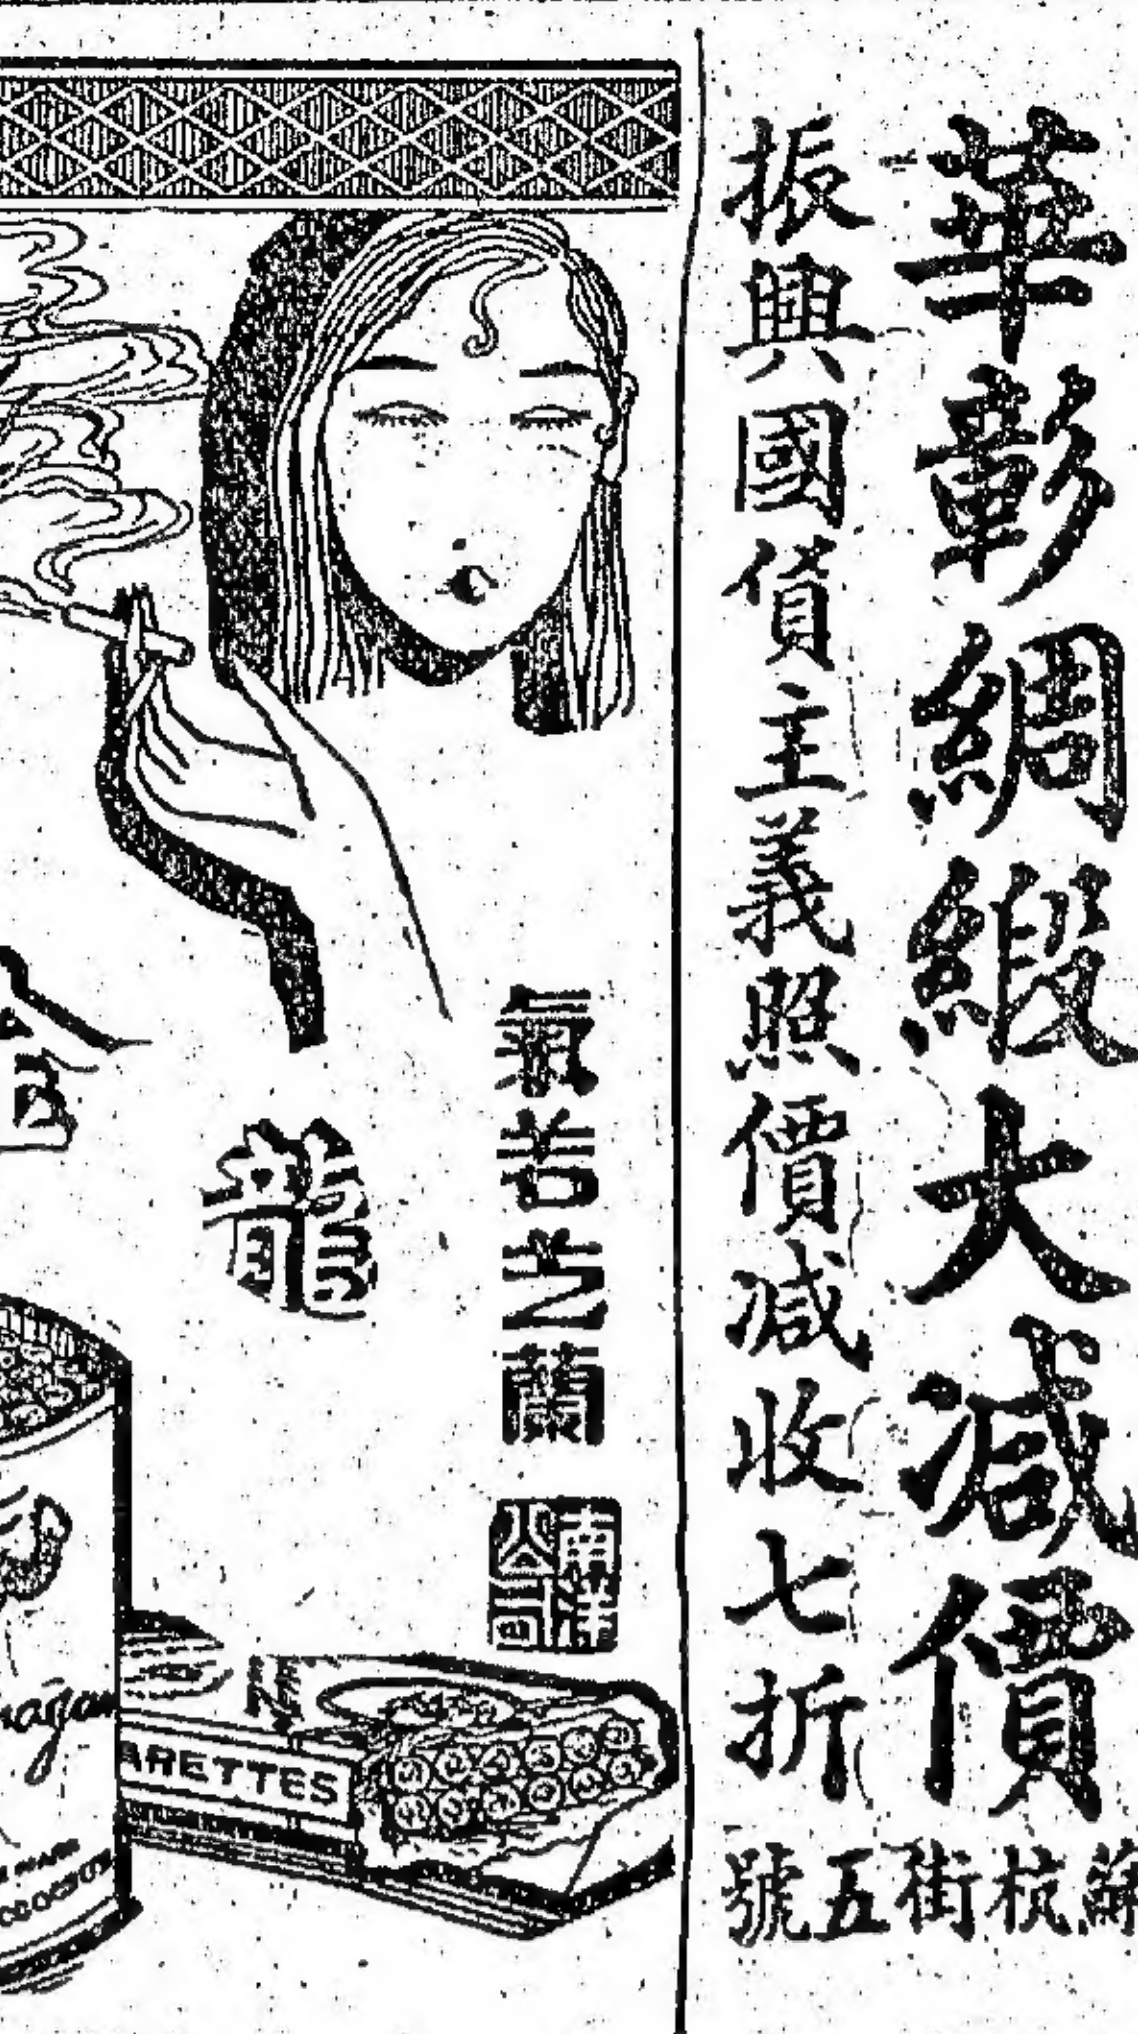 華彰綢緞大減價
振興國貨主義照價減收七折
蘇杭街五號
氣若芝蘭
南洋公司
龍
ARETTES